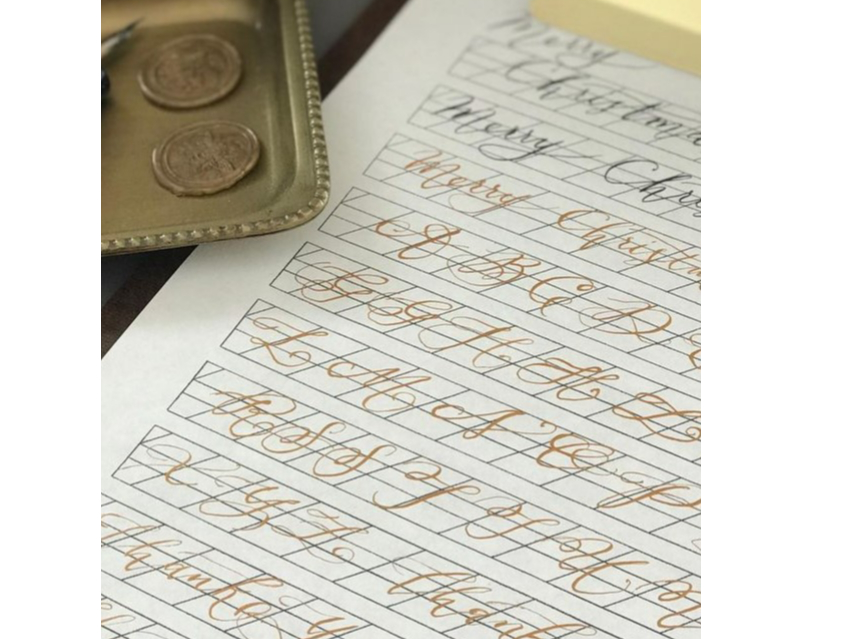 Merry
Christma
Merry Chri
Merry Christm
A B C D
G H
L M N O P
R S S T U
X Y Z
thanks thank